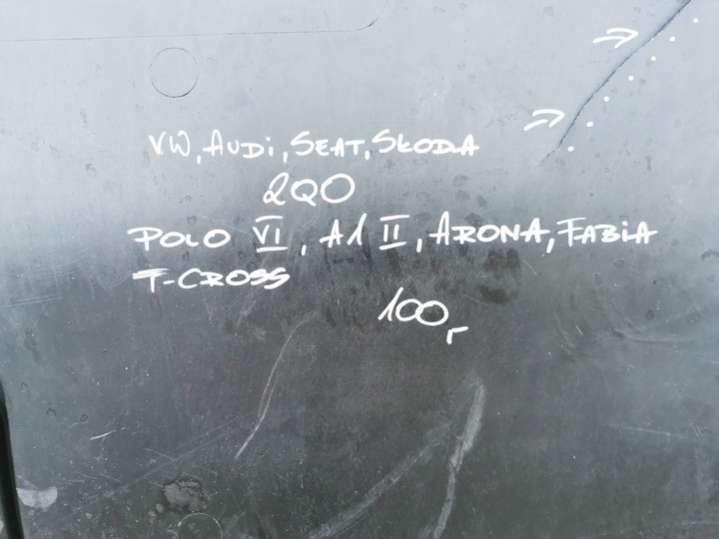 VW, AUDi, SEAT, SKODA
2Q0
POLO VI, A1 II, ARONA, FABiA
T-CROSS
100,r